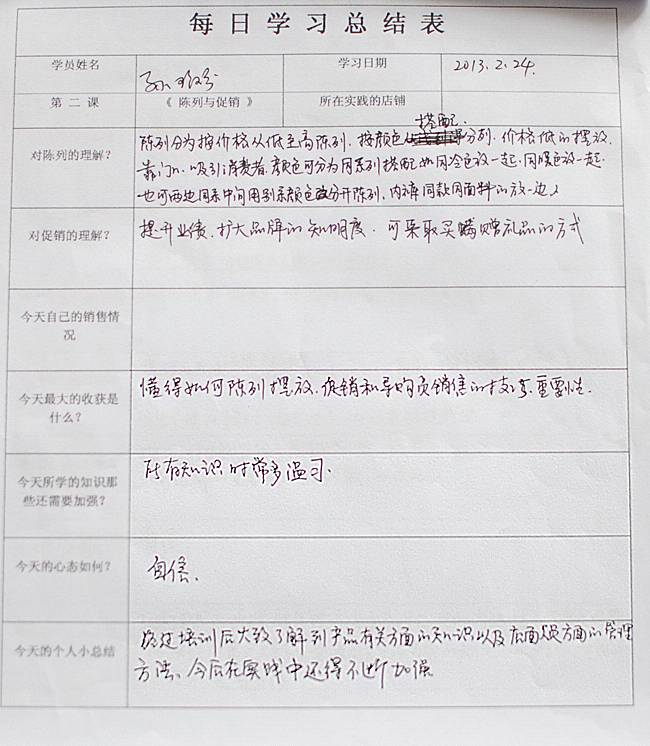 每日学习总结表
学员姓名 学习日期 2013.2.24.
第二课 《陈列与促销》 所在实践的店铺
搭配.
对陈列的理解? 陈列分为按价格从低至高陈列.按颜色分列.价格低的摆放
靠门口.吸引消费者.颜色可分为同系列搭配如同冷色放一起.同暖色放一起.
也可两边同系中间用别系颜色分开陈列、内裤同款同面料的放一边、
对促销的理解? 提升业绩.扩大品牌的知明度.可采取买赠礼品的方式
今天自己的销售情
况
今天最大的收获是
什么? 懂得如何陈列摆放.促销和导购员销售的技巧重要性.
今天所学的知识那
些还需要加强? 所有知识时常多温习.
今天的心态如何? 自信、
今天的个人小总结 经过培训后大致了解到产品有关方面的知识以及店面方面的管理
方法、今后在实践中还得不断加强